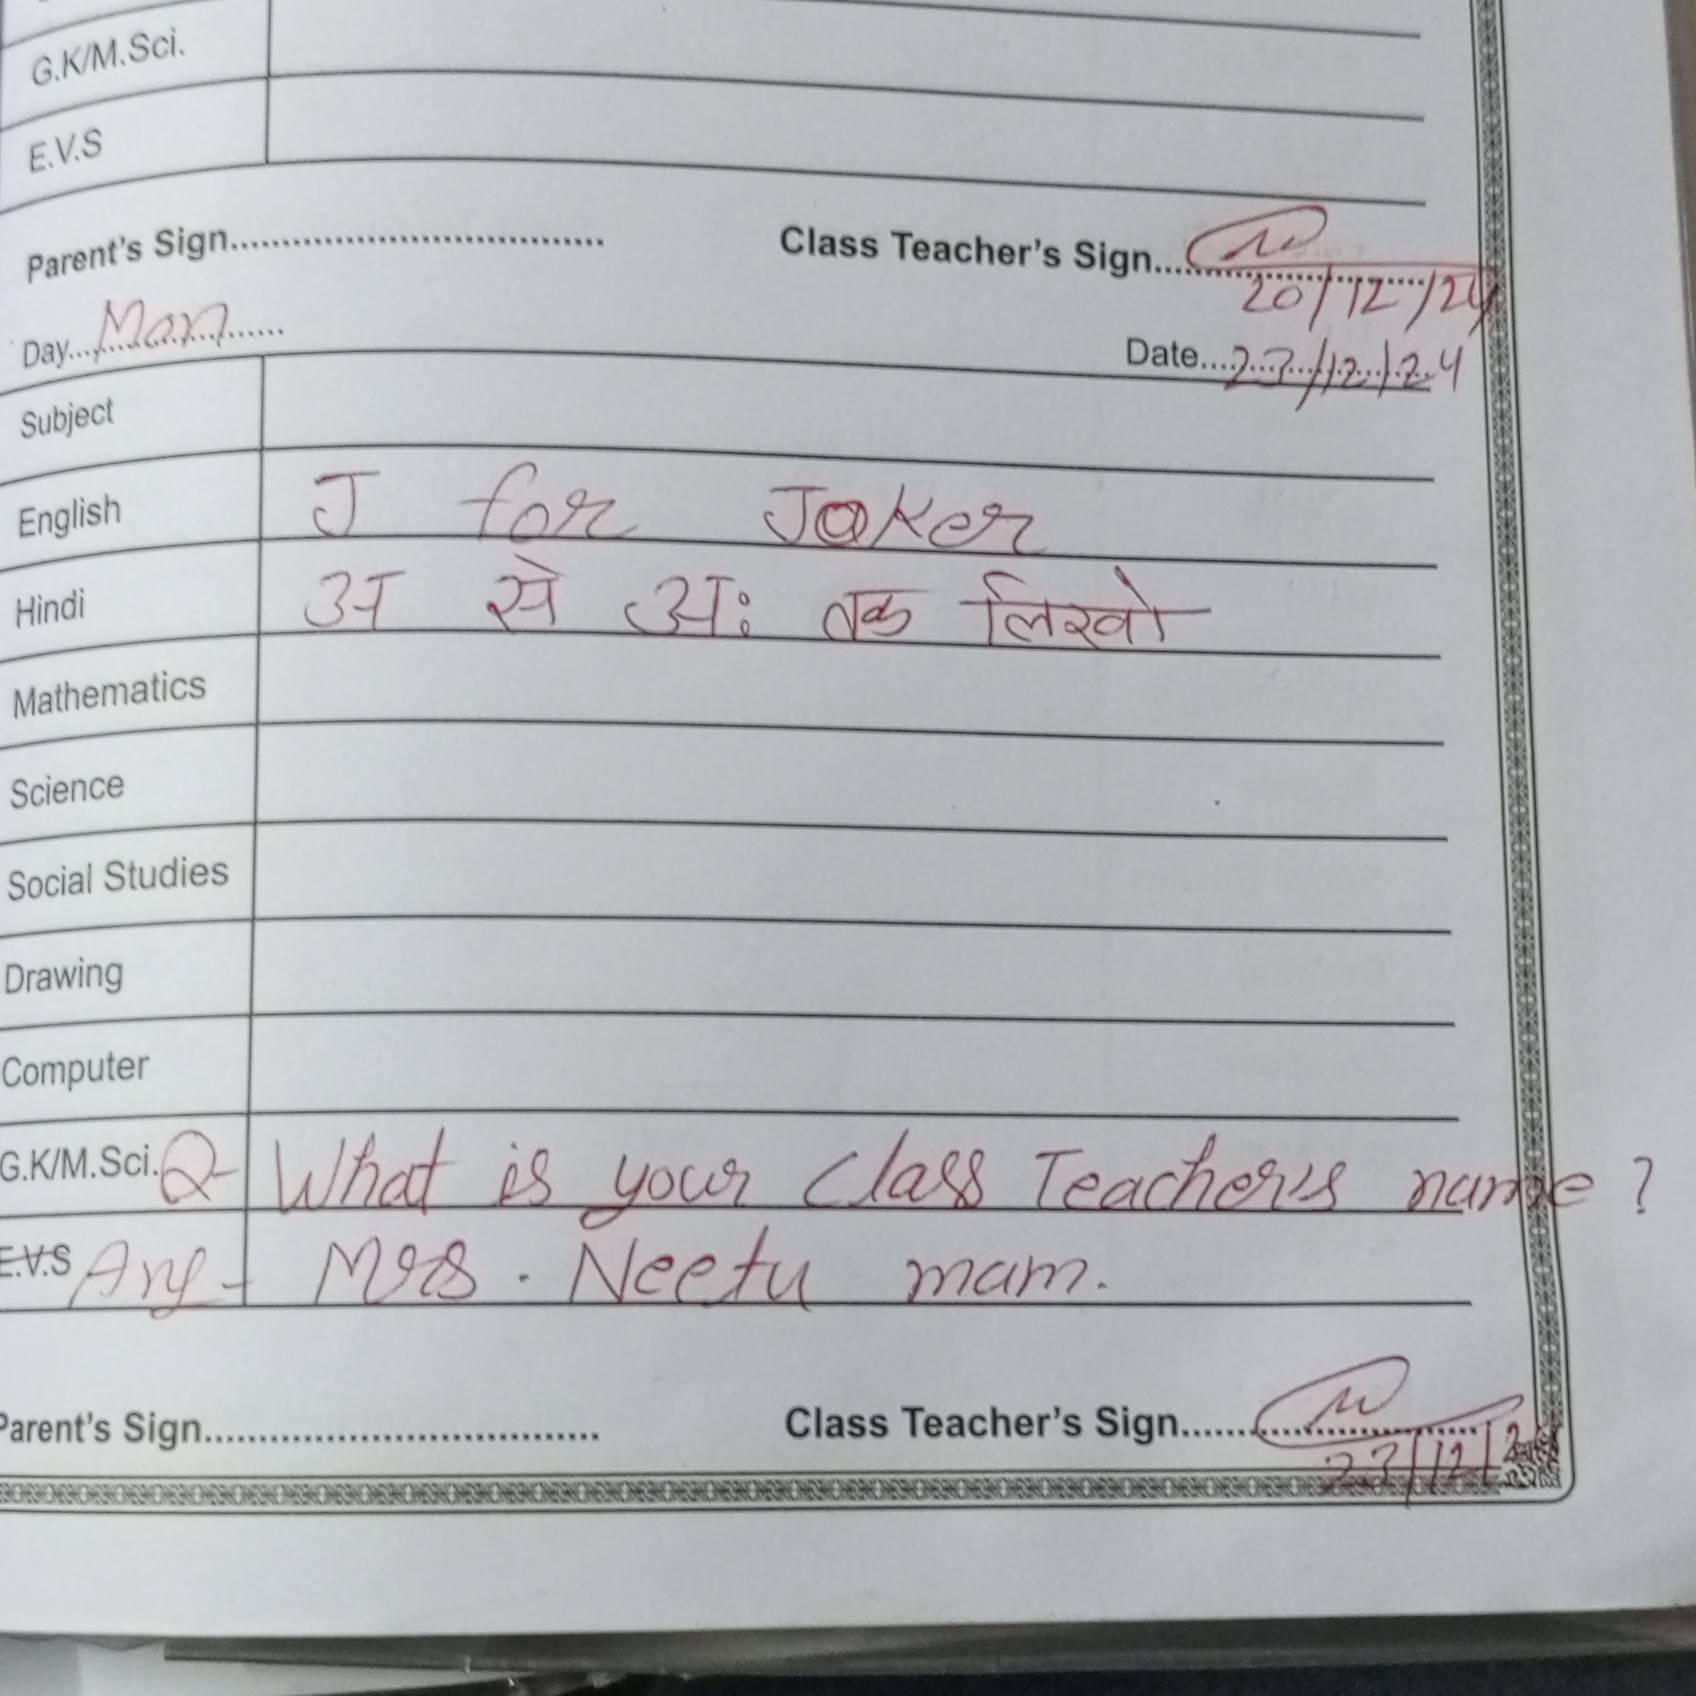 G.K/M.Sci.
E.V.S
Parent's Sign.................................... Class Teacher's Sign..............................
20/12/24
Day...Mon......... Date...23/12/24
Subject
English J for Joker
Hindi अ से अः तक लिखो
Mathematics
Science
Social Studies
Drawing
Computer
G.K/M.Sci. Q- What is your Class Teacher's name?
E.V.S Ans- Mrs. Neetu mam.
Parent's Sign.................................... Class Teacher's Sign..............................
23/12/2